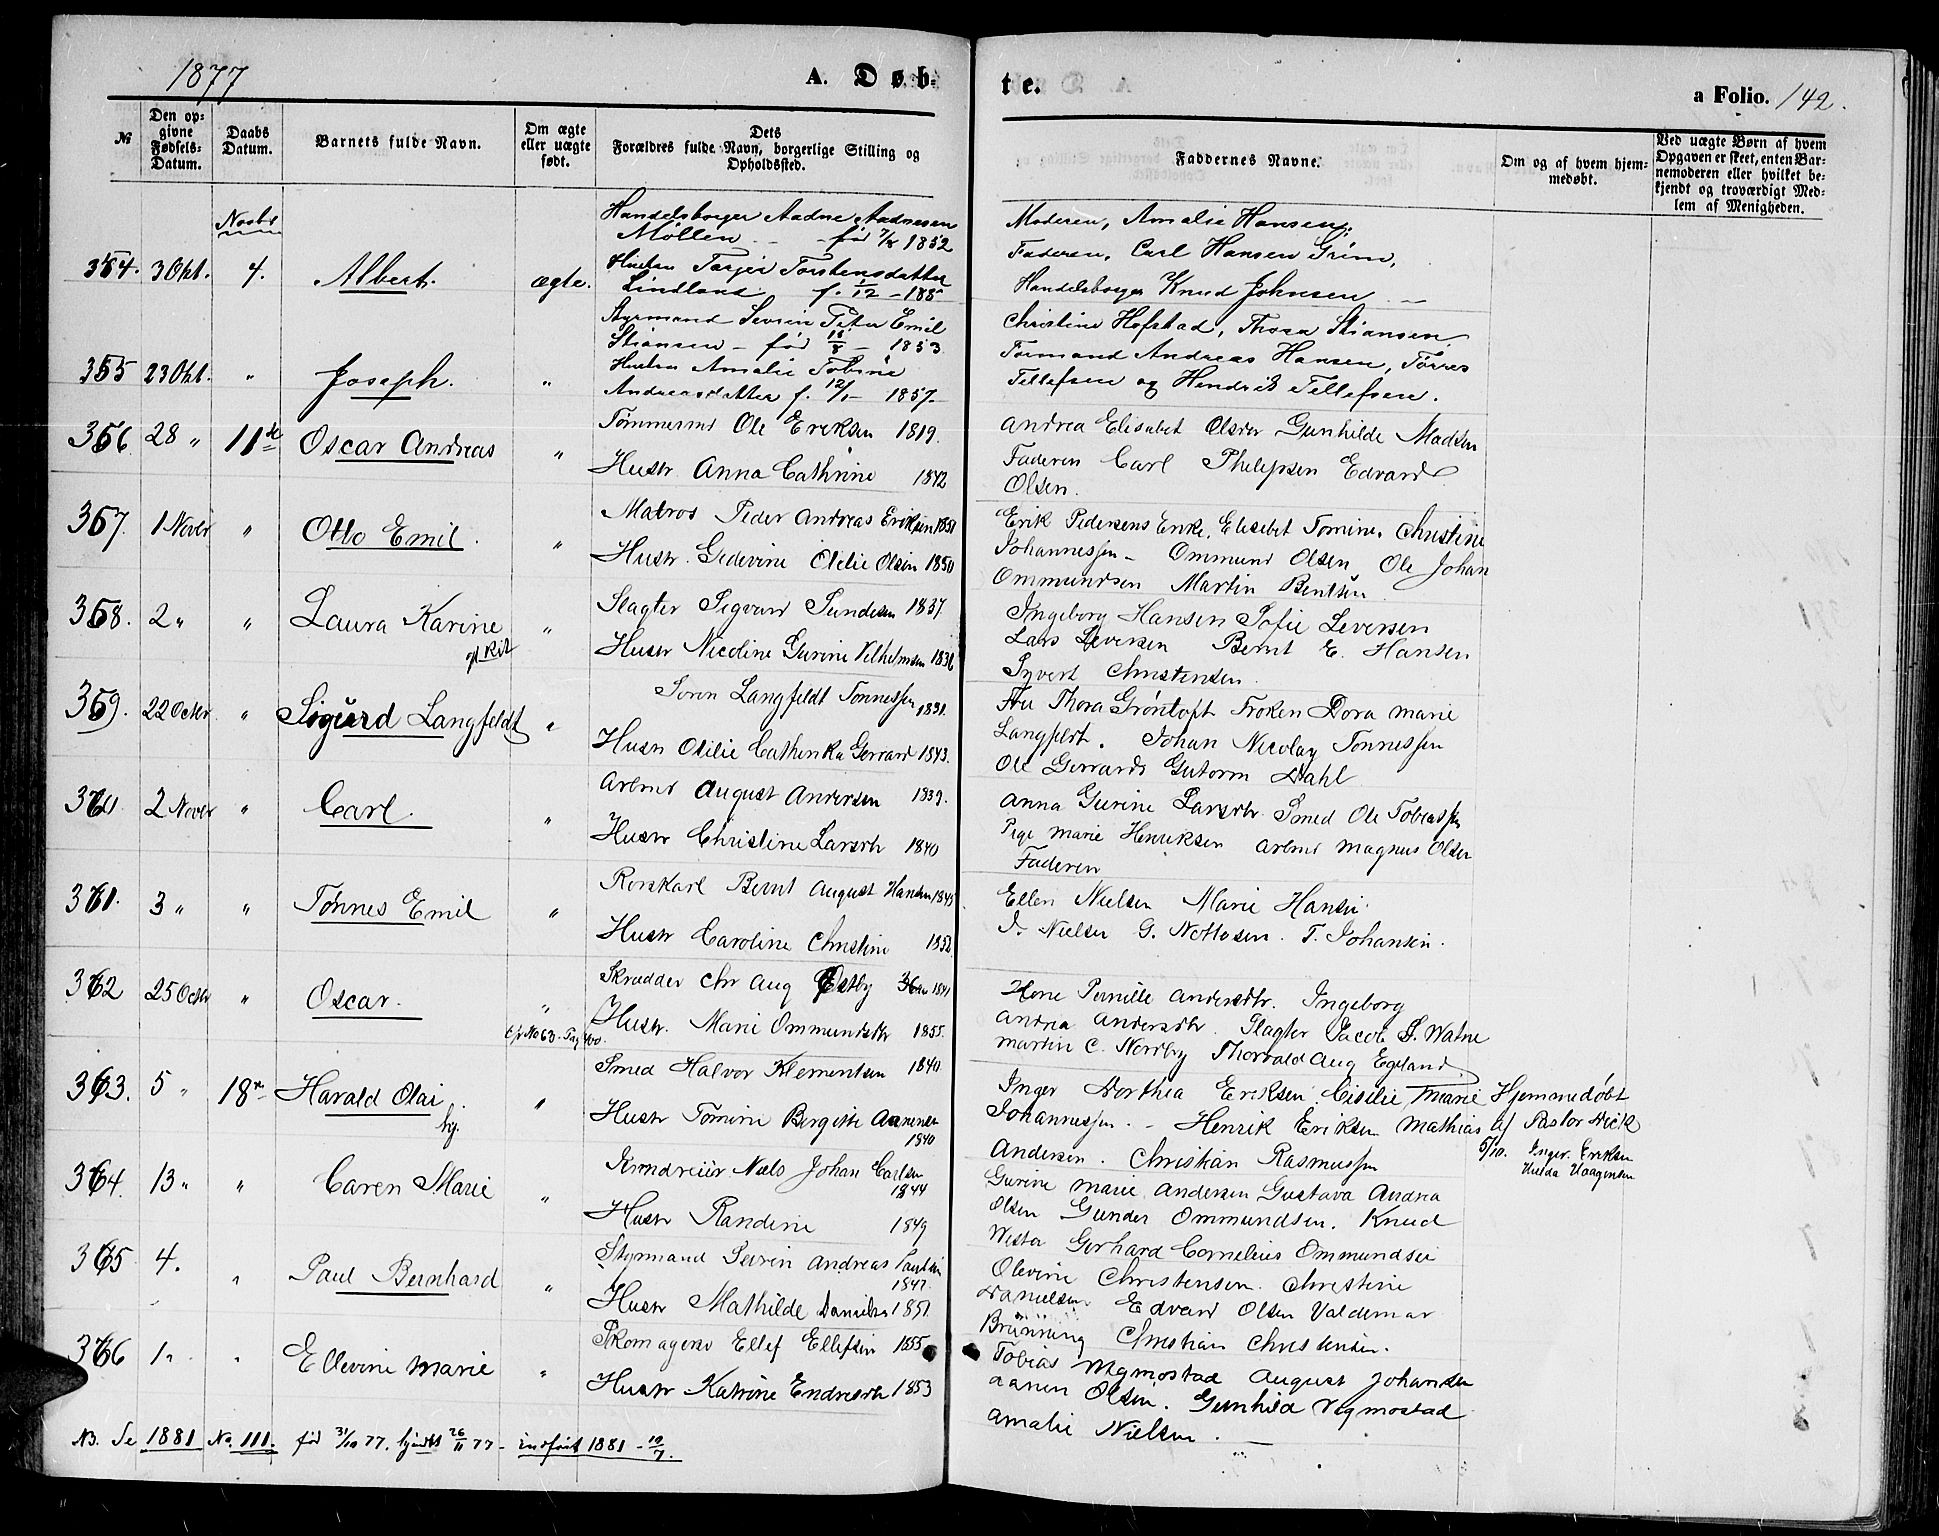 1877
A. Døb-
te.
a Folio. 142.
№
Den op-
givne
Fødsels-
Datum.
Daabs
Datum.
Barnets fulde Navn.
Om ægte
eller uægte
født.
Dets
Forældres fulde Navn, borgerlige Stilling og
Opholdssted.
Faddernes Navne.
Om og af hvem hjem-
medøbt.
Ved uægte Børn af hvem
Opgaven er skeet, enten Bar-
nemoderen eller hvilket be-
kjendt og troværdigt Med-
lem af Menigheden.
Novbr
354. 3 Okt. 4. Albert. ægte.
Handelsborger Aadne Aadnesen
Møllen - før 1852
Hustru Tarjer Torstensdatter
Lindland f. 1/12 - 185
Moderen, Amalie Hansen,
Faderen, Carl Hansen Grim,
Handelsborger Knud Johnsen
355 23 Okt. " Joseph. "
Styrmand Sevrin Peter Emil
Stiansen - før - 1853
Hustru Amalie Tobine
Andreasdatter f. 12/1 - 1857
Christine Hofstad, Thora Stiansen
Tørmand Andreas Hansen, Tørres
Tellefsen og Hendrik Tellefsen.
356 28 " 11te Oscar Andreas "
Tømmermd Ole Eriksen 1819.
Hustr Anna Cathrine 1842
Andrea Elisabet Olsdr Gunhilde Madsen
Faderen Carl Philipsen Edvard
Olsen.
357. 1 Novbr " Otto Emil. "
Matros Peder Andreas Eriksen 1851
Hustr. Gedevine Otilie Olsen 1850
Erik Pedersens Enke, Elisebet Tomine, Christine
Johannessen - Ommund Olsen Ole Johan
Ommundsen Martin Bentsen
358. 2 " " Laura Karine "
Slagter Sigvard Sundesen 1837
Hustr Nicoline Gurine Vilhelmsen 1836
Ingeborg Hansen Sofie Seversen
Lars Seversen Bernt E. Hansen
Syvert Christensen
359. 22 Octbr " Sigurd Langfeldt "
Soren Langfeldt Tonnessen 1831.
Hustr Otilie Cathinka Gerrard 1843.
Fru Thora Grøntoft Froken Dora Marie
Langfeldt. Johan Nicolay Tonnessen
Ole Gerrards Gutorm Dahl
360 2 Novbr " Carl. "
Arbmd August Andersen 1839.
Hustr Christine Larsdtr 1840
Anna Gurine Larsdtr. Smed Ole Tobiassen
Pige Marie Henriksen Arbmd Magnus Olsen
Faderen
361. 3 " " Tønnes Emil "
Rorskarl Bernt August Hansen 1845
Hustr Caroline Christine 1852
Ellen Nielsen Marie Hansen
J. Nielsen G. Nottosen. T. Johansen.
362 25 Octbr " Oscar. "
Skrædder Chr Aug Østby 1841
Hustr. Marie Ommundsdtr 1855.
Kone Pernille Andersdtr. Ingeborg
Andrea Andersdtr. Slagter Jacob S. Watne
Martin C. Nordby Thorvald Aug Egeland
363. 5 " 18de Harald Olai "
hj.
Smed Halvor Klementsen 1840
Hustr Tomine Bergitte Aanensen
1840
Inger Dorthea Eriksen Cisilie Marie
Johannessen. - Henrik Eriksen Mathias
Andersen. Christian Rasmussen
Hjemmedøbt
af Pastor Dick
6/10. Inger Eriksen
Hulda Haagensen
364. 13 " " Caren Marie "
Konduktør Niels Johan Carlsen
1844
Hustr Randine 1849
Gurine Marie Andersen Gustava Andrea
Olsen Gunder Ommundsen. Knud
Wester Gerhard Cornelius Ommundsen
365 4. " Paul Bernhard "
Styrmand Severin Andreas Paulsen
1847
Hustr Mathilde Danielsen 1851
Olevine Christensen. Christine
Danielsen Edvard Olsen Valdemar
Brünning Christian Christensen.
366 1 " " Ellevine Marie "
Skomagersv Ellef Ellefsen 1855
Hustr Katrine Endresdtr 1853
Tobias Vigmostad August Johansen
Aanen Olsen. Gunhild Vigmostad
Amalie Nielsen.
NB. Se 1881 No. 111. før 31/10 77. hjdøbt 26/11 77 - indført 1881 - 10/7.